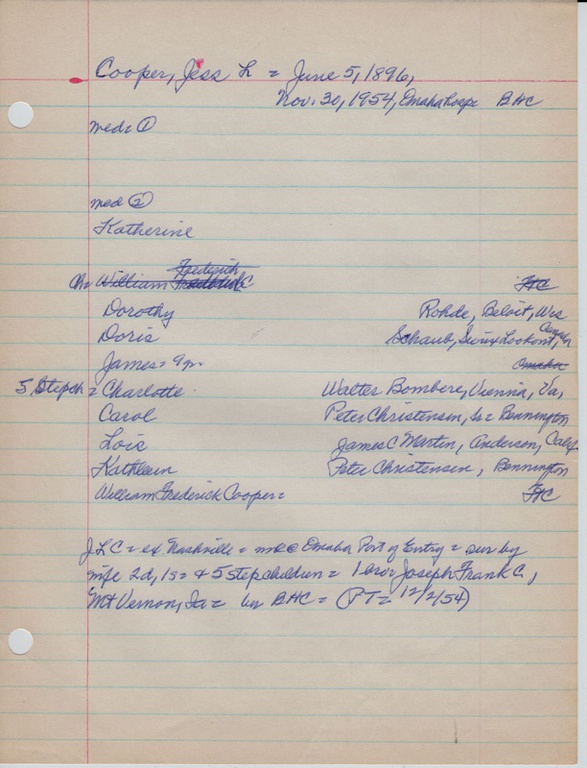 Cooper, Jess L = June 5, 1896,
Nov. 30, 1954, Omaha Hosp BHC
med = ①
med ②
Katherine
Frederick
Ch = William Frederick C FHC
Dorothy Rohde, Beloit, Wis
Doris Schaub, Sioux Lookout, Canada
James = 9 yr. Omaha
5 Stepch = Charlotte Walter Bombere, Vienna, Va,
Carol Peter Christensen, Sr = Bennington
Lois James C Martin, Anderson, Calif
Kathleen Peter Christensen, Bennington
William Frederick Cooper = FHC
JLC = ex Nashville = Omaha Port of Entry = sur by
wife 2d, 1s = & 5 stepchildren = 1 bro = Joseph Frank C,
Mt Vernon, Ia = bur BHC = (PT = 12/2/54)